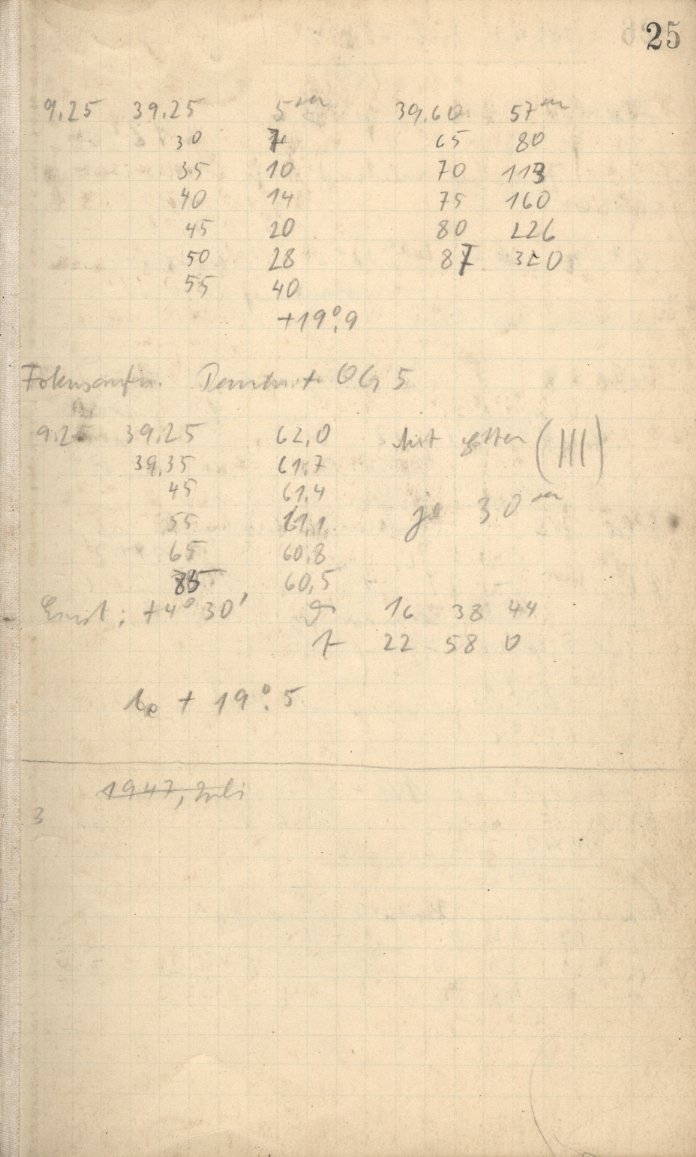 25
9.25 39.25 5 39.60 57
30 7 65 80
35 10 70 113
40 14 75 160
45 20 80 226
50 28 87 320
55 40
+19°.9
OG 5
9.25 39.25 62,0 Mit (III)
39,35 61,7
45 61,4 je 30
55 61,1
65 60,8
85 60,5
+4° 30' 16 38 44
22 58 0
+ 19°.5
1947, Juli
3